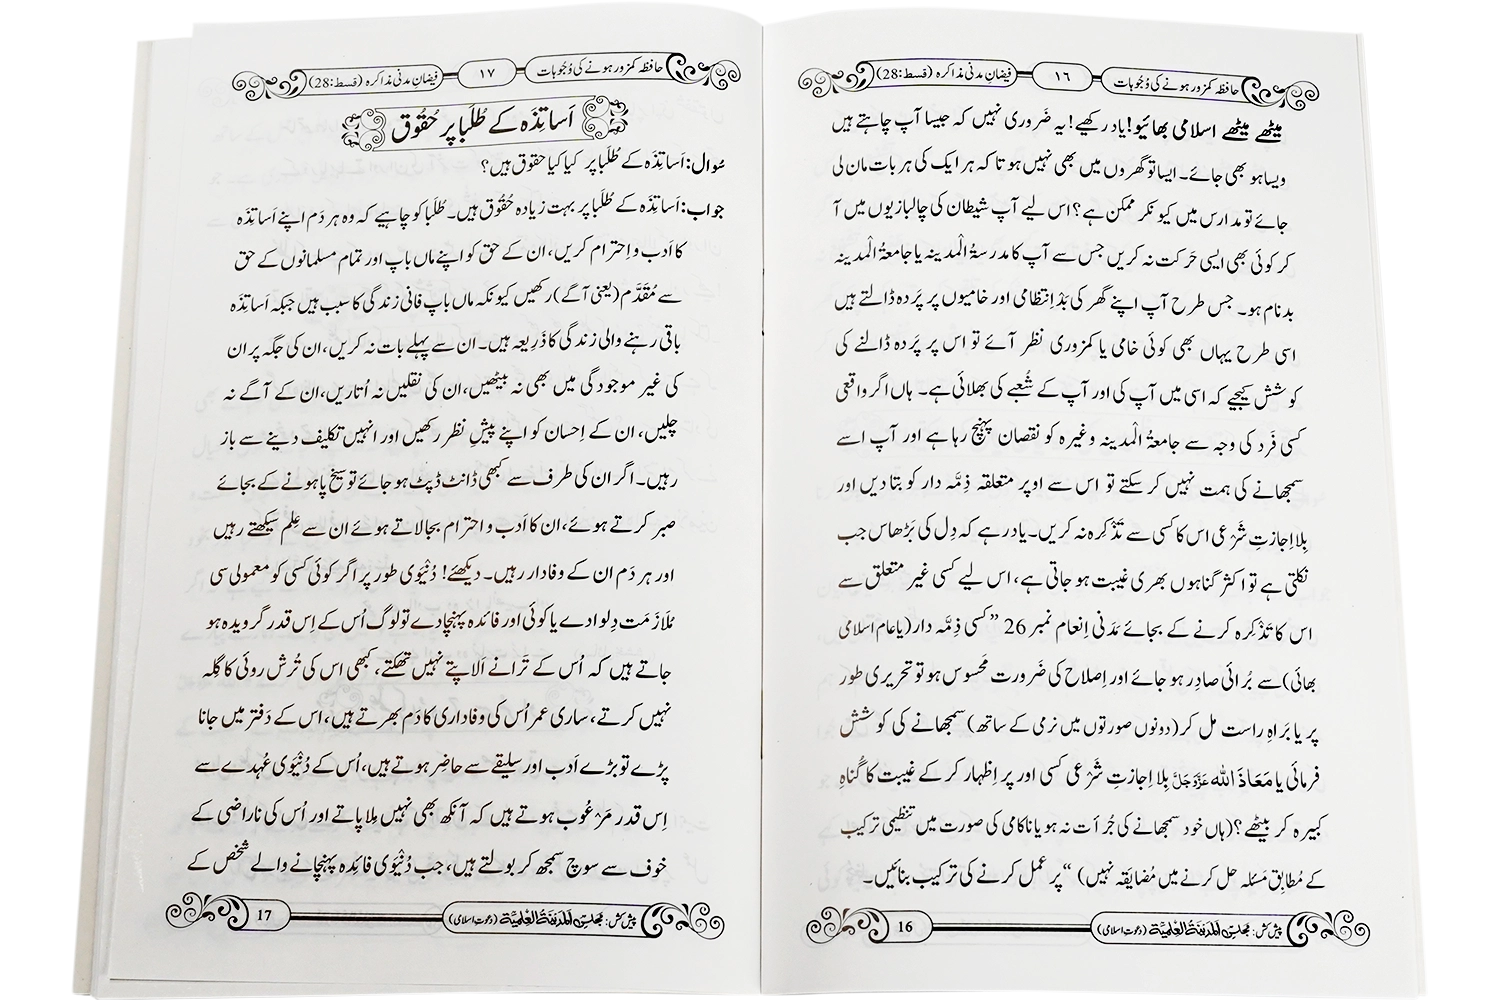 حافظہ کمزور ہونے کی وُجُوہات ١٦ فیضانِ مدنی مذاکرہ (قسط:28)
میٹھے میٹھے اسلامی بھائیو! یاد رکھیے! یہ ضَروری نہیں کہ جیسا آپ چاہتے ہیں
ویسا ہو بھی جائے۔ ایسا تو گھروں میں بھی نہیں ہوتا کہ ہر ایک کی ہر بات مان لی
جائے تو مدارس میں کیونکر ممکن ہے؟ اس لیے آپ شیطان کی چالبازیوں میں آ
کر کوئی بھی ایسی حَرکت نہ کریں جس سے آپ کا مدرسۃُ الْمدینہ یا جامعۃُ الْمدینہ
بدنام ہو۔ جس طرح آپ اپنے گھر کی بَدْ اِنتظامی اور خامیوں پر پَردہ ڈالتے ہیں
اسی طرح یہاں بھی کوئی خامی یا کمزوری نظر آئے تو اس پر پَردہ ڈالنے کی
کوشش کیجیے کہ اسی میں آپ کی اور آپ کے شُعبے کی بھلائی ہے۔ ہاں اگر واقعی
کسی فَرد کی وجہ سے جامعۃُ الْمدینہ وغیرہ کو نقصان پہنچ رہا ہے اور آپ اسے
سمجھانے کی ہمت نہیں کر سکتے تو اس سے اوپر متعلقہ ذِمَّہ دار کو بتا دیں اور
بِلا اِجازتِ شَرْعی اس کا کسی سے تَذْکِرہ نہ کریں۔ یاد رہے کہ دِل کی بَڑھاس جب
نکلتی ہے تو اکثر گناہوں بھری غیبت ہو جاتی ہے، اس لیے کسی غیر متعلق سے
اس کا تَذْکِرہ کرنے کے بجائے مَدَنی اِنعام نمبر 26 ”کسی ذِمَّہ دار (یا عام اسلامی
بھائی) سے بُرائی صادِر ہو جائے اور اِصلاح کی ضَرورت مَحسوس ہو تو تحریری طور
پر یا بَراہِ راست مل کر (دونوں صورتوں میں نرمی کے ساتھ) سمجھانے کی کوشش
فرمائی یا مَعَاذَ اللہ عَزَّوَجَلَّ بِلا اِجازتِ شَرْعی کسی اور پر اِظہار کر کے غیبت کا گُناہِ
کبیرہ کر بیٹھے؟ (ہاں خود سمجھانے کی جُرأت نہ ہو یا ناکامی کی صورت میں تنظیمی ترکیب
کے مُطابِق مَسئلہ حل کرنے میں مُضایَقہ نہیں)“ پر عمل کرنے کی ترکیب بنائیں۔
پیش کش: مجلس المدینۃ العلمیۃ (دعوتِ اسلامی) 16
حافظہ کمزور ہونے کی وُجُوہات ١٧ فیضانِ مدنی مذاکرہ (قسط:28)
اَساتِذَہ کے طُلَبا پر حُقُوق
سُوال: اَساتِذَہ کے طُلَبا پر کیا کیا حقوق ہیں؟
جواب: اَساتِذَہ کے طُلَبا پر بہت زیادہ حُقُوق ہیں۔ طُلَبا کو چاہیے کہ وہ ہر دَم اپنے اَساتِذَہ
کا اَدب و اِحترام کریں، ان کے حق کو اپنے ماں باپ اور تمام مسلمانوں کے حق
سے مُقَدَّم (یعنی آگے) رکھیں کیونکہ ماں باپ فانی زندگی کا سبب ہیں جبکہ اَساتِذَہ
باقی رہنے والی زندگی کا ذَرِیعہ ہیں۔ ان سے پہلے بات نہ کریں، ان کی جگہ پر ان
کی غیر موجودگی میں بھی نہ بیٹھیں، ان کی نقلیں نہ اُتاریں، ان کے آگے نہ
چلیں، ان کے اِحسان کو اپنے پیشِ نظر رکھیں اور انہیں تکلیف دینے سے باز
رہیں۔ اگر ان کی طرف سے کبھی ڈانٹ ڈپٹ ہو جائے تو سیخ پا ہونے کے بجائے
صبر کرتے ہوئے، ان کا اَدب و احترام بجا لاتے ہوئے ان سے عِلم سیکھتے رہیں
اور ہر دَم ان کے وفادار رہیں۔ دیکھئے! دُنْیَوی طور پر اگر کوئی کسی کو معمولی سی
مُلازَمت دِلوا دے یا کوئی اور فائدہ پہنچا دے تو لوگ اُس کے اِس قدر گرویدہ ہو
جاتے ہیں کہ اُس کے تَرانے اَلاپتے نہیں تھکتے، کبھی اس کی تُرش روئی کا گِلہ
نہیں کرتے، ساری عمر اُس کی وفاداری کا دَم بھرتے ہیں، اس کے دَفتر میں جانا
پڑے تو بڑے اَدب اور سلیقے سے حاضِر ہوتے ہیں، اُس کے دُنْیَوی عُہدے سے
اِس قدر مَرْعُوب ہوتے ہیں کہ آنکھ بھی نہیں مِلا پاتے اور اُس کی ناراضی کے
خوف سے سوچ سمجھ کر بولتے ہیں، جب دُنْیَوی فائدہ پہنچانے والے شخص کے
پیش کش: مجلس المدینۃ العلمیۃ (دعوتِ اسلامی) 17